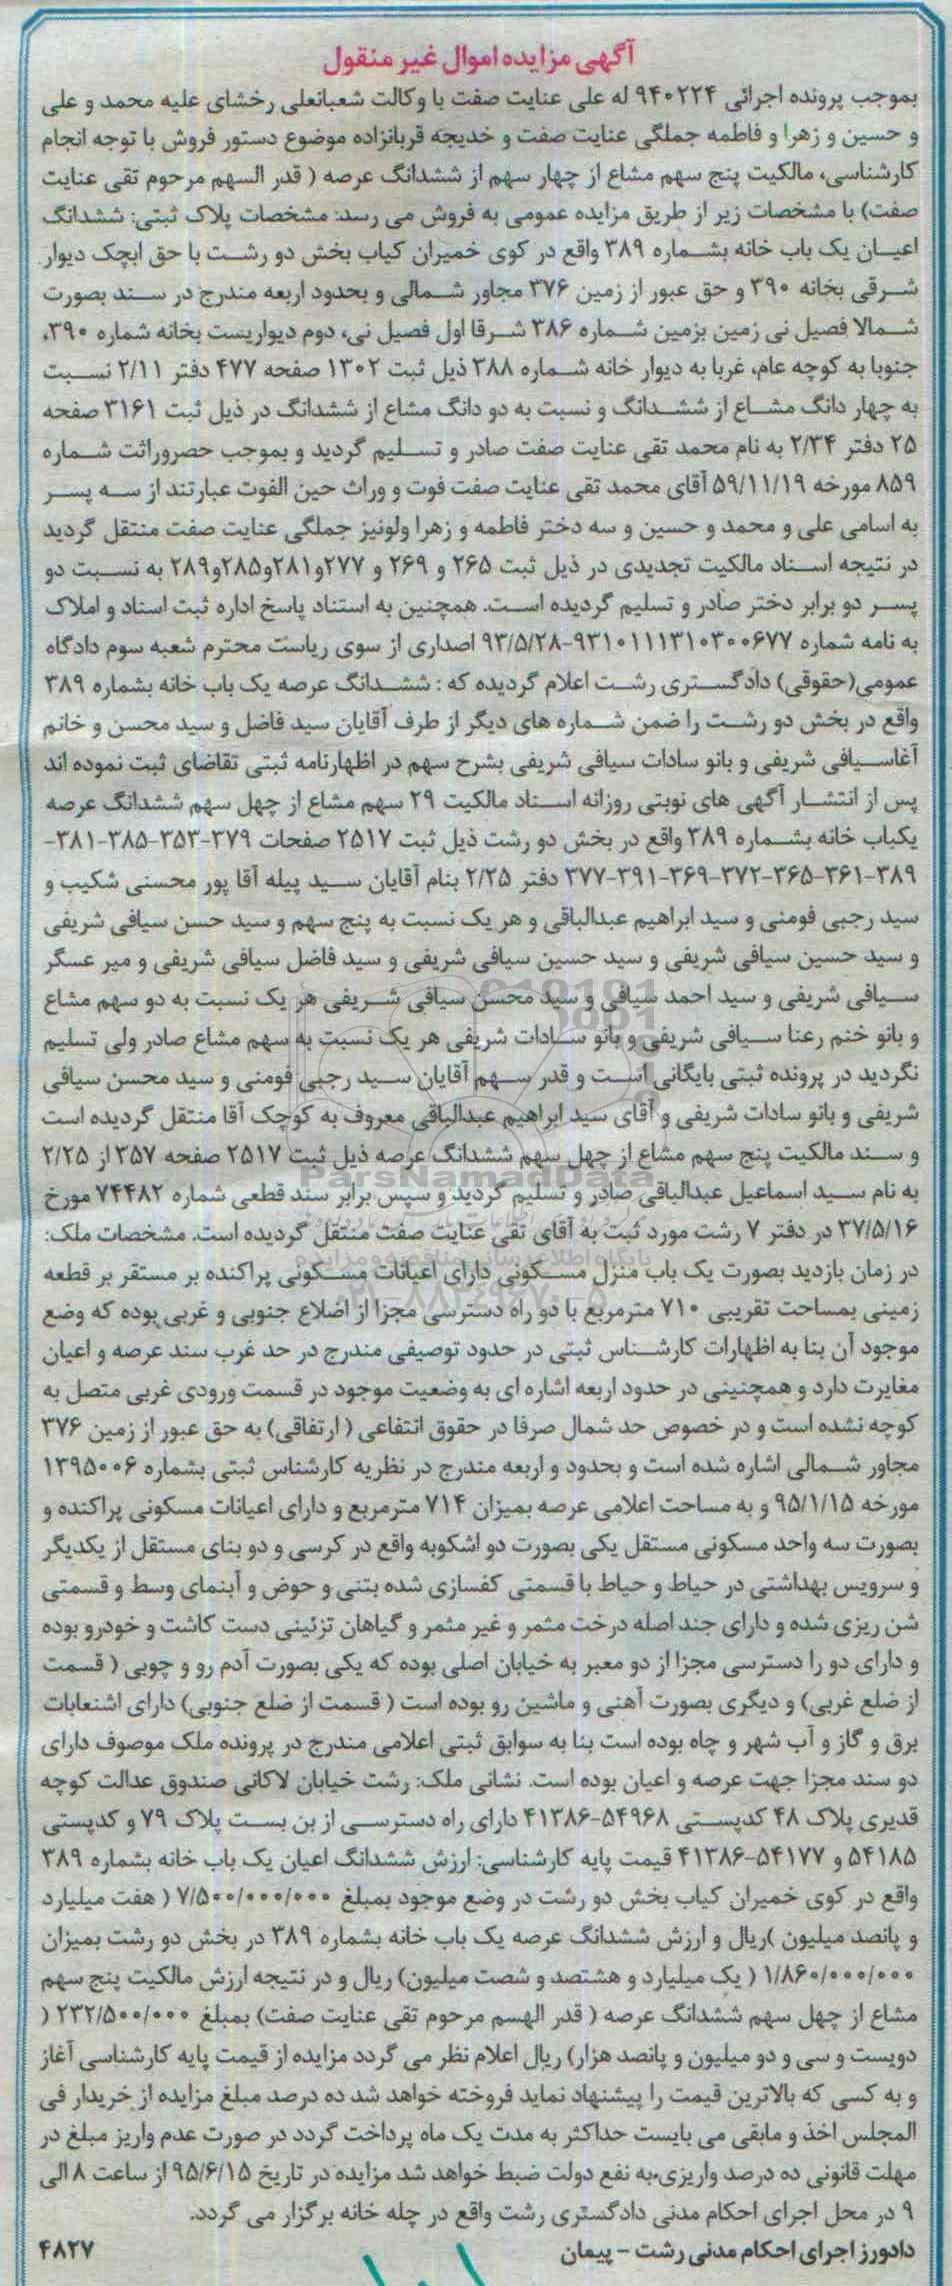 آگهی مزایده اموال غیر منقول
بموجب پرونده اجرائی ۹۴۰۲۲۴ له علی عنایت صفت با وکالت شعبانعلی رخشای علیه محمد و علی
و حسین و زهرا و فاطمه جملگی عنایت صفت و خدیجه قربانزاده موضوع دستور فروش با توجه انجام
کارشناسی، مالکیت پنج سهم مشاع از چهار سهم از ششدانگ عرصه ( قدر السهم مرحوم تقی عنایت
صفت) با مشخصات زیر از طریق مزایده عمومی به فروش می رسد: مشخصات پلاک ثبتی: ششدانگ
اعیان یک باب خانه بشماره ۳۸۹ واقع در کوی خمیران کیاب بخش دو رشت با حق ابچک دیوار
شرقی بخانه ۳۹۰ و حق عبور از زمین ۳۷۶ مجاور شمالی و بحدود اربعه مندرج در سند بصورت
شمالا فصیل نی زمین بزمین شماره ۳۸۶ شرقا اول فصیل نی، دوم دیواریست بخانه شماره ۳۹۰،
جنوبا به کوچه عام، غربا به دیوار خانه شماره ۳۸۸ ذیل ثبت ۱۳۰۲ صفحه ۴۷۷ دفتر ۲/۱۱ نسبت
به چهار دانگ مشاع از ششدانگ و نسبت به دو دانگ مشاع از ششدانگ در ذیل ثبت ۳۱۶۱ صفحه
۲۵ دفتر ۲/۳۴ به نام محمد تقی عنایت صفت صادر و تسلیم گردید و بموجب حصروراثت شماره
۸۵۹ مورخه ۵۹/۱۱/۱۹ آقای محمد تقی عنایت صفت فوت و وراث حین الفوت عبارتند از سه پسر
به اسامی علی و محمد و حسین و سه دختر فاطمه و زهرا ولونیز جملگی عنایت صفت منتقل گردید
در نتیجه اسناد مالکیت تجدیدی در ذیل ثبت ۲۶۵ و ۲۶۹ و ۲۷۷و۲۸۱و۲۸۵و۲۸۹ به نسبت دو
پسر دو برابر دختر صادر و تسلیم گردیده است. همچنین به استناد پاسخ اداره ثبت اسناد و املاک
به نامه شماره ۹۳۱۰۱۱۱۳۱۰۳۰۰۶۷۷-۹۳/۵/۲۸ اصداری از سوی ریاست محترم شعبه سوم دادگاه
عمومی(حقوقی) دادگستری رشت اعلام گردیده که : ششدانگ عرصه یک باب خانه بشماره ۳۸۹
واقع در بخش دو رشت را ضمن شماره های دیگر از طرف آقایان سید فاضل و سید محسن و خانم
آغاسیافی شریفی و بانو سادات سیافی شریفی بشرح سهم در اظهارنامه ثبتی تقاضای ثبت نموده اند
پس از انتشار آگهی های نوبتی روزانه اسناد مالکیت ۲۹ سهم مشاع از چهل سهم ششدانگ عرصه
یکباب خانه بشماره ۳۸۹ واقع در بخش دو رشت ذیل ثبت ۲۵۱۷ صفحات ۳۷۹-۳۵۳-۳۸۵-۳۸۱-
۳۸۹-۳۶۱-۳۶۵-۳۷۲-۳۶۹-۳۹۱-۳۷۷ دفتر ۲/۲۵ بنام آقایان سید پیله آقا پور محسنی شکیب و
سید رجبی فومنی و سید ابراهیم عبدالباقی و هر یک نسبت به پنج سهم و سید حسن سیافی شریفی
و سید حسین سیافی شریفی و سید حسین سیافی شریفی و سید فاضل سیافی شریفی و میر عسگر
سیافی شریفی و سید احمد سیافی و سید محسن سیافی شریفی هر یک نسبت به دو سهم مشاع
و بانو ختم رعنا سیافی شریفی و بانو سادات شریفی هر یک نسبت به سهم مشاع صادر ولی تسلیم
نگردید در پرونده ثبتی بایگانی است و قدر سهم آقایان سید رجبی فومنی و سید محسن سیافی
شریفی و بانو سادات شریفی و آقای سید ابراهیم عبدالباقی معروف به کوچک آقا منتقل گردیده است
و سند مالکیت پنج سهم مشاع از چهل سهم ششدانگ عرصه ذیل ثبت ۲۵۱۷ صفحه ۳۵۷ از ۲/۲۵
ParsNamadData
به نام سید اسماعیل عبدالباقی صادر و تسلیم گردید و سپس برابر سند قطعی شماره ۷۴۴۸۲ مورخ
۳۷/۵/۱۶ در دفتر ۷ رشت مورد ثبت به آقای تقی عنایت صفت منتقل گردیده است. مشخصات ملک:
پایگاه اطلاع رسانی مناقصه و مزایده
در زمان بازدید بصورت یک باب منزل مسکونی دارای اعیانات مسکونی پراکنده بر مستقر بر قطعه
۰۲۱-۸۸۳۴۹۶۷۰-۵
زمینی بمساحت تقریبی ۷۱۰ مترمربع با دو راه دسترسی مجزا از اضلاع جنوبی و غربی بوده که وضع
موجود آن بنا به اظهارات کارشناس ثبتی در حدود توصیفی مندرج در حد غرب سند عرصه و اعیان
مغایرت دارد و همچنینی در حدود اربعه اشاره ای به وضعیت موجود در قسمت ورودی غربی متصل به
کوچه نشده است و در خصوص حد شمال صرفا در حقوق انتفاعی ( ارتفاقی) به حق عبور از زمین ۳۷۶
مجاور شمالی اشاره شده است و بحدود و اربعه مندرج در نظریه کارشناس ثبتی بشماره ۱۳۹۵۰۰۶
مورخه ۹۵/۱/۱۵ و به مساحت اعلامی عرصه بمیزان ۷۱۴ مترمربع و دارای اعیانات مسکونی پراکنده و
بصورت سه واحد مسکونی مستقل یکی بصورت دو اشکوبه واقع در کرسی و دو بنای مستقل از یکدیگر
و سرویس بهداشتی در حیاط و حیاط با قسمتی کفسازی شده بتنی و حوض و آبنمای وسط و قسمتی
شن ریزی شده و دارای جند اصله درخت مثمر و غیر مثمر و گیاهان تزئینی دست کاشت و خودرو بوده
و دارای دو را دسترسی مجزا از دو معبر به خیابان اصلی بوده که یکی بصورت آدم رو و چوبی ( قسمت
از ضلع غربی) و دیگری بصورت آهنی و ماشین رو بوده است ( قسمت از ضلع جنوبی) دارای اشنعابات
برق و گاز و آب شهر و چاه بوده است بنا به سوابق ثبتی اعلامی مندرج در پرونده ملک موصوف دارای
دو سند مجزا جهت عرصه و اعیان بوده است. نشانی ملک: رشت خیابان لاکانی صندوق عدالت کوچه
قدیری پلاک ۴۸ کدپستی ۵۴۹۶۸-۴۱۳۸۶ دارای راه دسترسی از بن بست پلاک ۷۹ و کدپستی
۵۴۱۸۵ و ۵۴۱۷۷-۴۱۳۸۶ قیمت پایه کارشناسی: ارزش ششدانگ اعیان یک باب خانه بشماره ۳۸۹
واقع در کوی خمیران کیاب بخش دو رشت در وضع موجود بمبلغ ۷/۵۰۰/۰۰۰/۰۰۰ ( هفت میلیارد
و پانصد میلیون )ریال و ارزش ششدانگ عرصه یک باب خانه بشماره ۳۸۹ در بخش دو رشت بمیزان
۱/۸۶۰/۰۰۰/۰۰۰ ( یک میلیارد و هشتصد و شصت میلیون) ریال و در نتیجه ارزش مالکیت پنج سهم
مشاع از چهل سهم ششدانگ عرصه ( قدر الهسم مرحوم تقی عنایت صفت) بمبلغ ۲۳۲/۵۰۰/۰۰۰ (
دویست و سی و دو میلیون و پانصد هزار) ریال اعلام نظر می گردد مزایده از قیمت پایه کارشناسی آغاز
و به کسی که بالاترین قیمت را پیشنهاد نماید فروخته خواهد شد ده درصد مبلغ مزایده از خریدار فی
المجلس اخذ و مابقی می بایست حداکثر به مدت یک ماه پرداخت گردد در صورت عدم واریز مبلغ در
مهلت قانونی ده درصد واریزی به نفع دولت ضبط خواهد شد مزایده در تاریخ ۹۵/۶/۱۵ از ساعت ۸ الی
۹ در محل اجرای احکام مدنی دادگستری رشت واقع در چله خانه برگزار می گردد.
دادورز اجرای احکام مدنی رشت - پیمان
۴۸۲۷